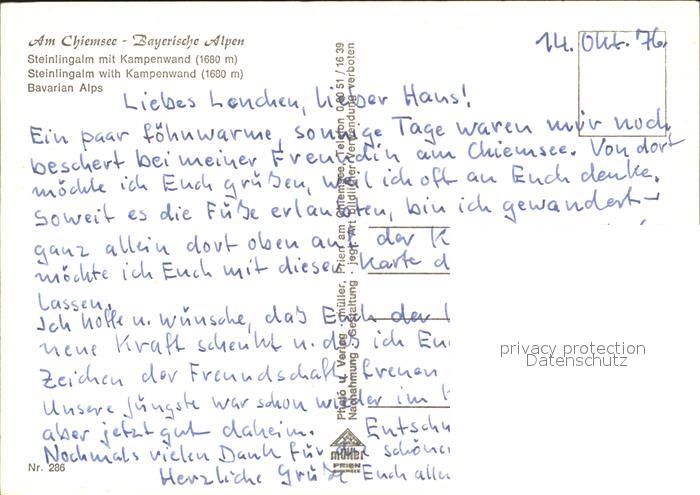 Am Chiemsee - Bayerische Alpen
Steinlingalm mit Kampenwand (1680 m)
Steinlingalm with Kampenwand (1680 m)
Bavarian Alps
14. Okt. 76.
Liebes Lenchen, lieber Hans!
Ein paar föhnwarme, sonnige Tage waren mir noch
beschert bei meiner Freundin am Chiemsee. Von dort
möchte ich Euch grüßen, weil ich oft an Euch denke.
Soweit es die Füße erlaubten, bin ich gewandert –
ganz allein dort oben auf der K
möchte ich Euch mit dieser Karte d
lassen.
Ich hoffe u. wünsche, daß Euch der
neue Kraft schenkt u. daß ich Eu
Zeichen der Freundschaft freuen
Unsere Jüngste war schon wieder im K
aber jetzt gut daheim. Entschu
Nochmals vielen Dank für die schönen
Herzliche Grüße Euch allen
Photo u. Verlag · müller, Prien am Chiemsee, Telefon 0 80 51 / 16 39
Nachahmung · Gestaltung · jegl. Art bildlicher Verwendung verboten
müller
PRIEN
Nr. 286
privacy protection
Datenschutz